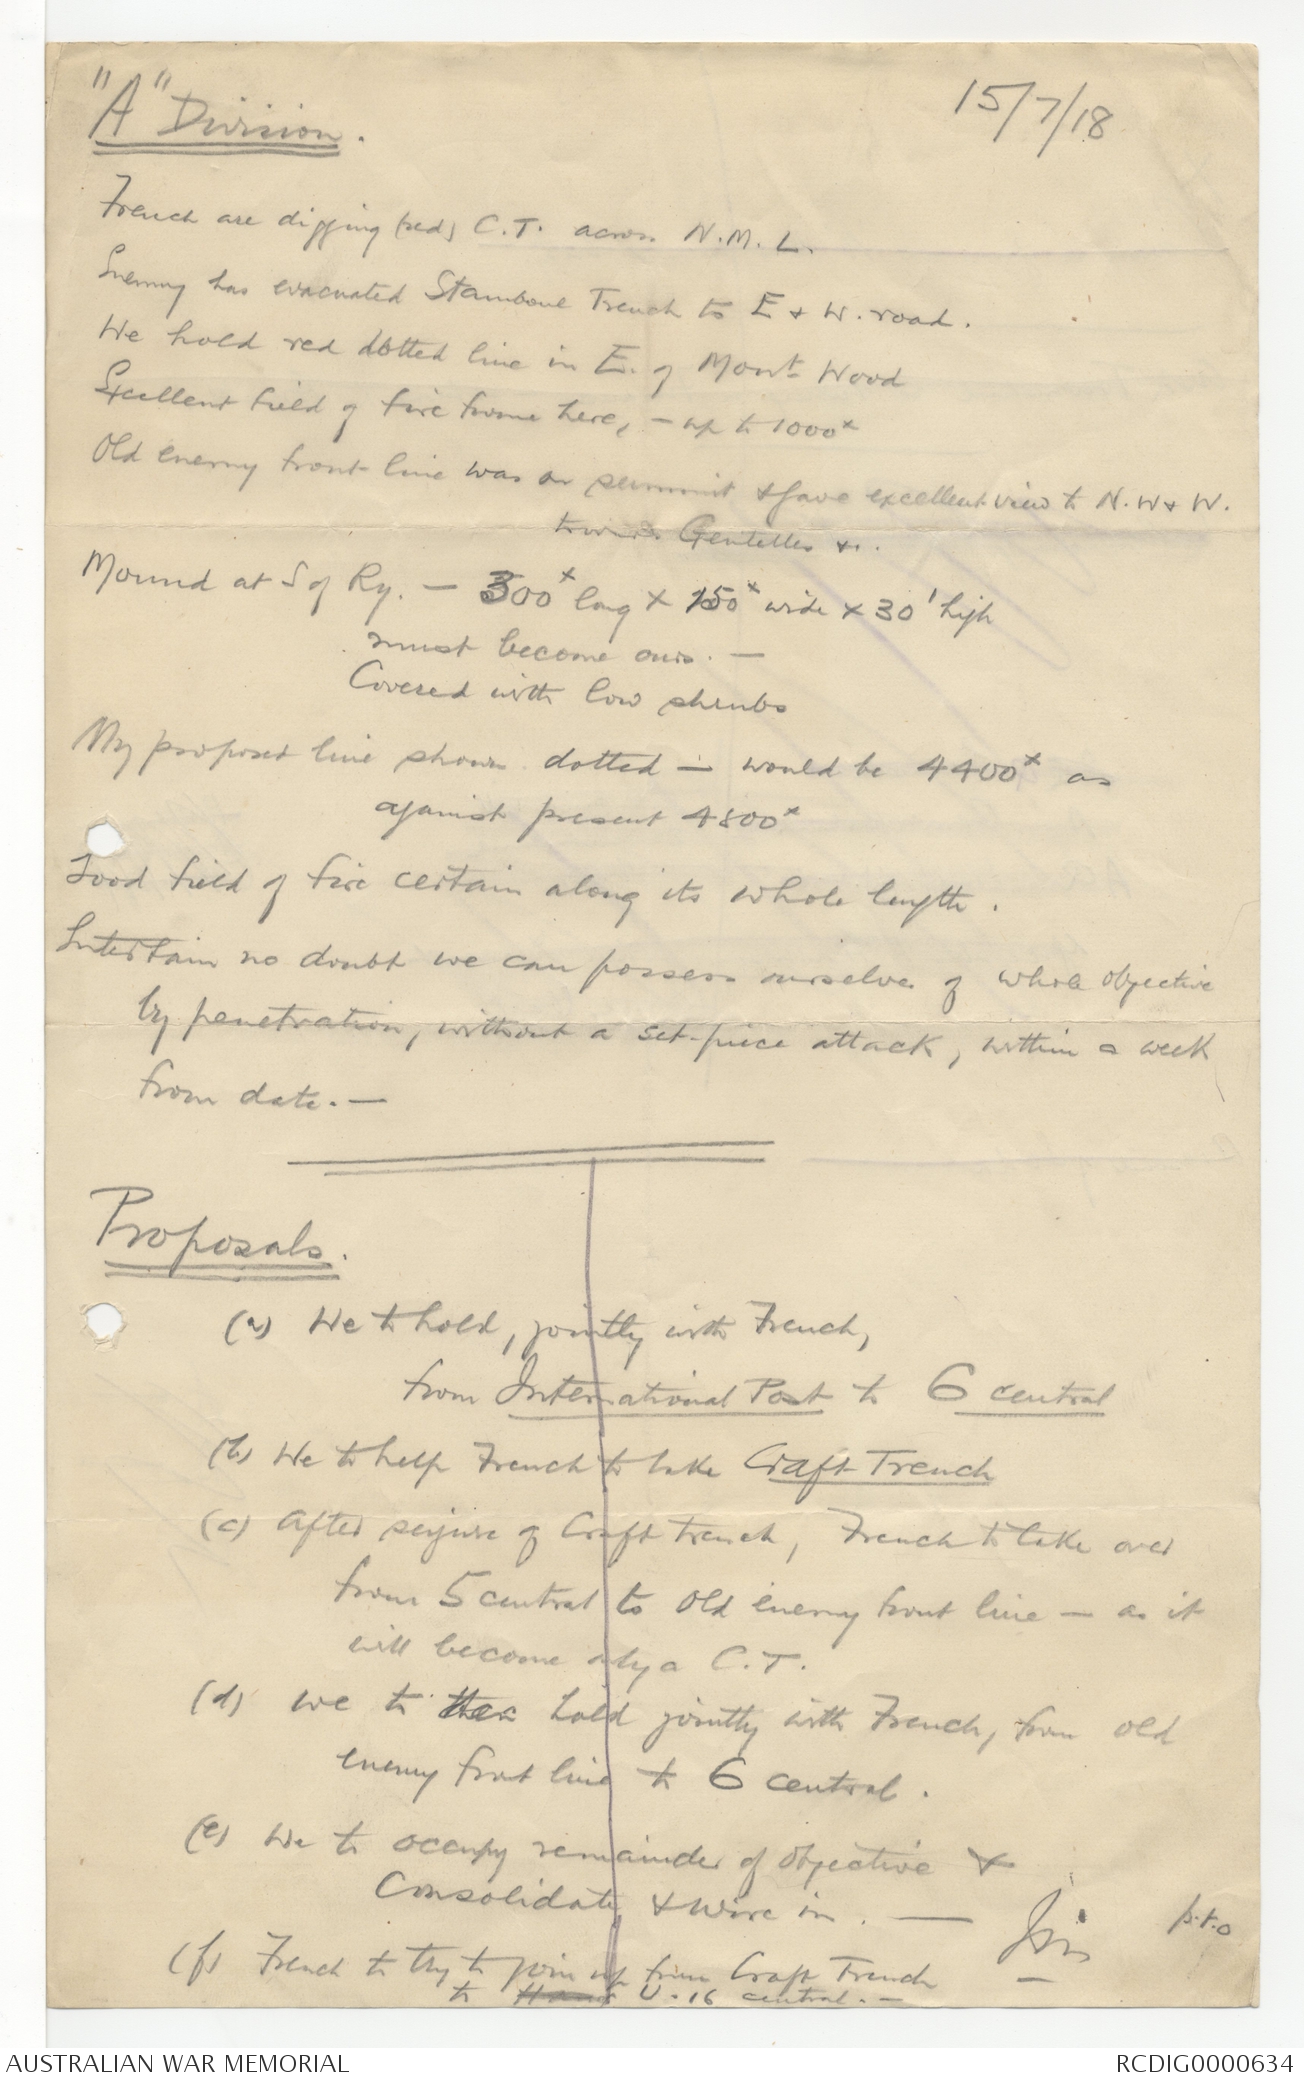 "A" Division.
15/7/18
French are digging (red) C.T. across N.M.L.
Enemy has evacuated Stamboul Trench to E & W. road.
We hold red dotted line in E. of Mont Wood
Excellent field of fire from here, - up to 1000x
Old enemy front line was on summit & gave excellent view to N.W & W.
towards Gentelles &c.
Mound at S of Ry. - 300x long x 150x wide x 30' high
must become ours. -
Covered with low shrubs
My proposed line shown dotted - would be 4400x as
against present 4800x
Good field of fire certain along its whole length.
Entertain no doubt we can possess ourselves of whole objective
by penetration, without a set-piece attack, within a week
from date. -
Proposals.
(a) We to hold, jointly with French,
from International Post to 6 central
(b) We to help French to take Craft Trench
(c) After seizure of Craft trench, French to take over
from 5 central to old enemy front line - as it
will become only a C.T.
(d) We to then hold jointly with French, from old
enemy front line to 6 central.
(e) We to occupy remainder of objective &
Consolidate, & wire in. -
p.t.o
(f) French to try to join up from Craft Trench
to U.16 central. -
AUSTRALIAN WAR MEMORIAL
RCDIG0000634